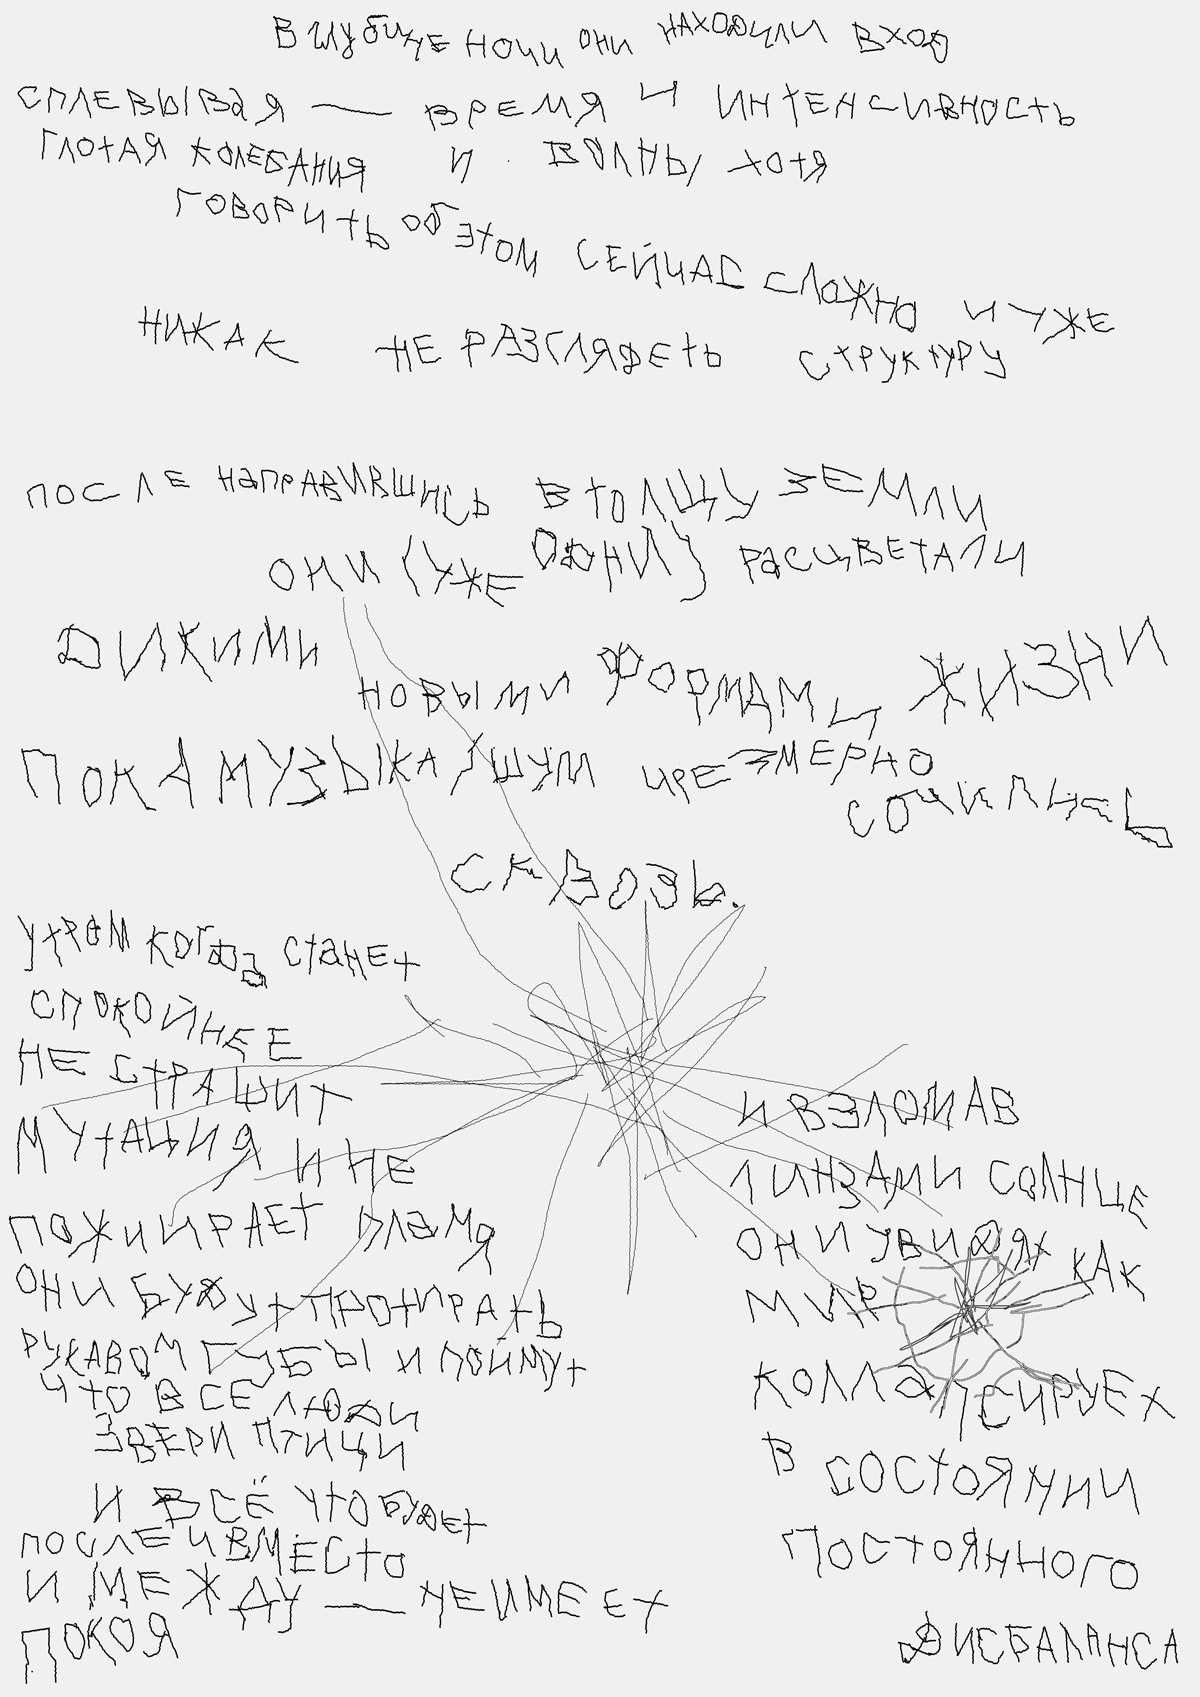 В глубине ночи они находили вход
сплевывая — время и интенсивность
глотая колебания и волны хотя
говорить об этом сейчас сложно и уже
никак не разглядеть структуру
после направившись в толщу земли
они (уже одни) расцветали
дикими
новыми формами жизни
пока музыка/шум чрезмерно
сочилась
сквозь.
утром когда станет
спокойнее
не страшит
мутация и не
пожиирает пламя
они будут протирать
рукавом губы и поймут
что все люди
звери птици
и всё что будет
после и вместо
и между — не имеет
покоя
и взломав
линзами солнце
они увидят как
мир
коллапсирует
в состоянии
постоянного
дисбаланса